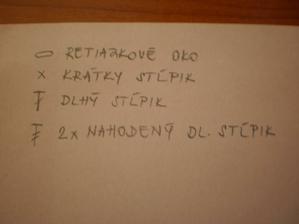 RETIAZKOVÉ OKO
× KRÁTKY STĹPIK
DLHÝ STĹPIK
2x NAHODENÝ DL. STĹPIK